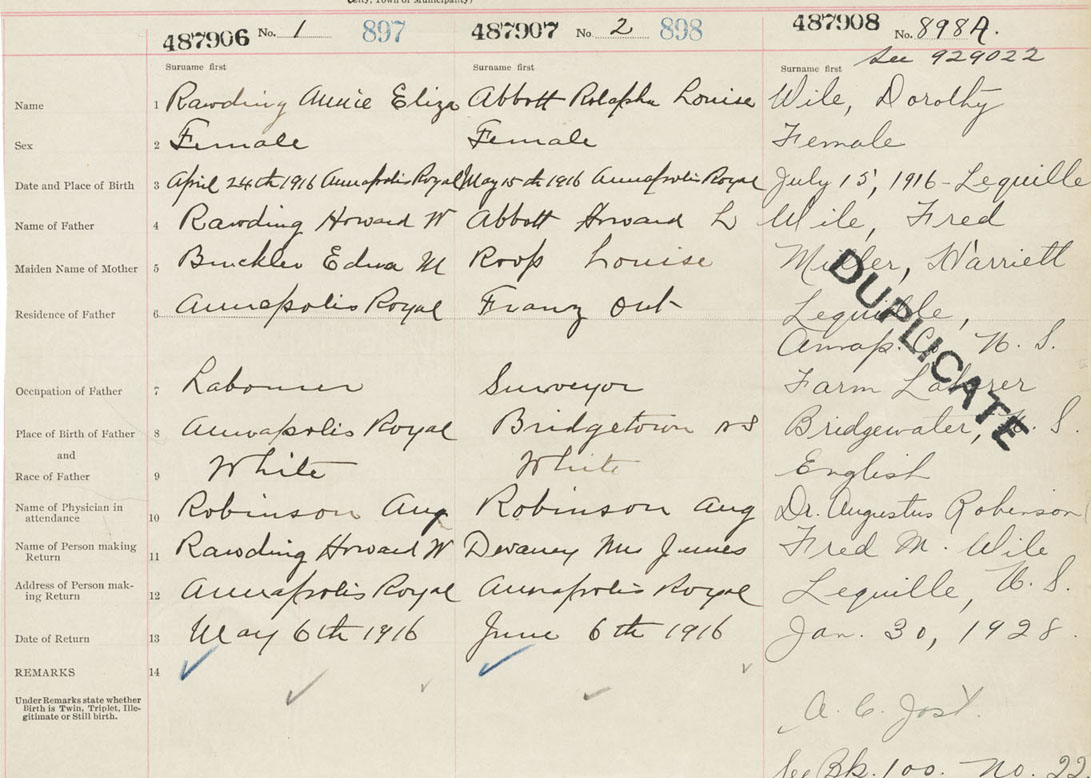 City, Town or Municipality)
487906 No. 1 897 487907 No 2 898 487908 No. 898A.
See 929022
Surname first Surname first Surname first
Name 1 Rawding Annie Eliza Abbott Louise Wile, Dorothy
Sex 2 Female Female Female
Date and Place of Birth 3 April 24th 1916 Annapolis Royal May 15th 1916 Annapolis Royal July 15, 1916 - Lequille
Name of Father 4 Rawding Howard W Abbott Howard L Wile, Fred
Maiden Name of Mother 5 Buckler Edna M Roop Louise Miller, Harriett
Residence of Father 6 Annapolis Royal Franz Ont Lequille,
Annap. Co. N. S.
DUPLICATE
Occupation of Father 7 Labourer Surveyor Farm Laborer
Place of Birth of Father 8 Annapolis Royal Bridgetown NS Bridgewater, N. S.
and
Race of Father 9 White White English
Name of Physician in
attendance 10 Robinson Aug Robinson Aug Dr. Augustus Robinson
Name of Person making
Return 11 Rawding Howard W Devaney Mrs James Fred M. Wile
Address of Person mak-
ing Return 12 Annapolis Royal Annapolis Royal Lequille, N. S.
Date of Return 13 May 6th 1916 June 6th 1916 Jan. 30, 1928.
REMARKS 14
Under Remarks state whether
Birth is Twin, Triplet, Ille-
gitimate or Still birth.
A. C. Jost.
See Bk. 100. No. 22